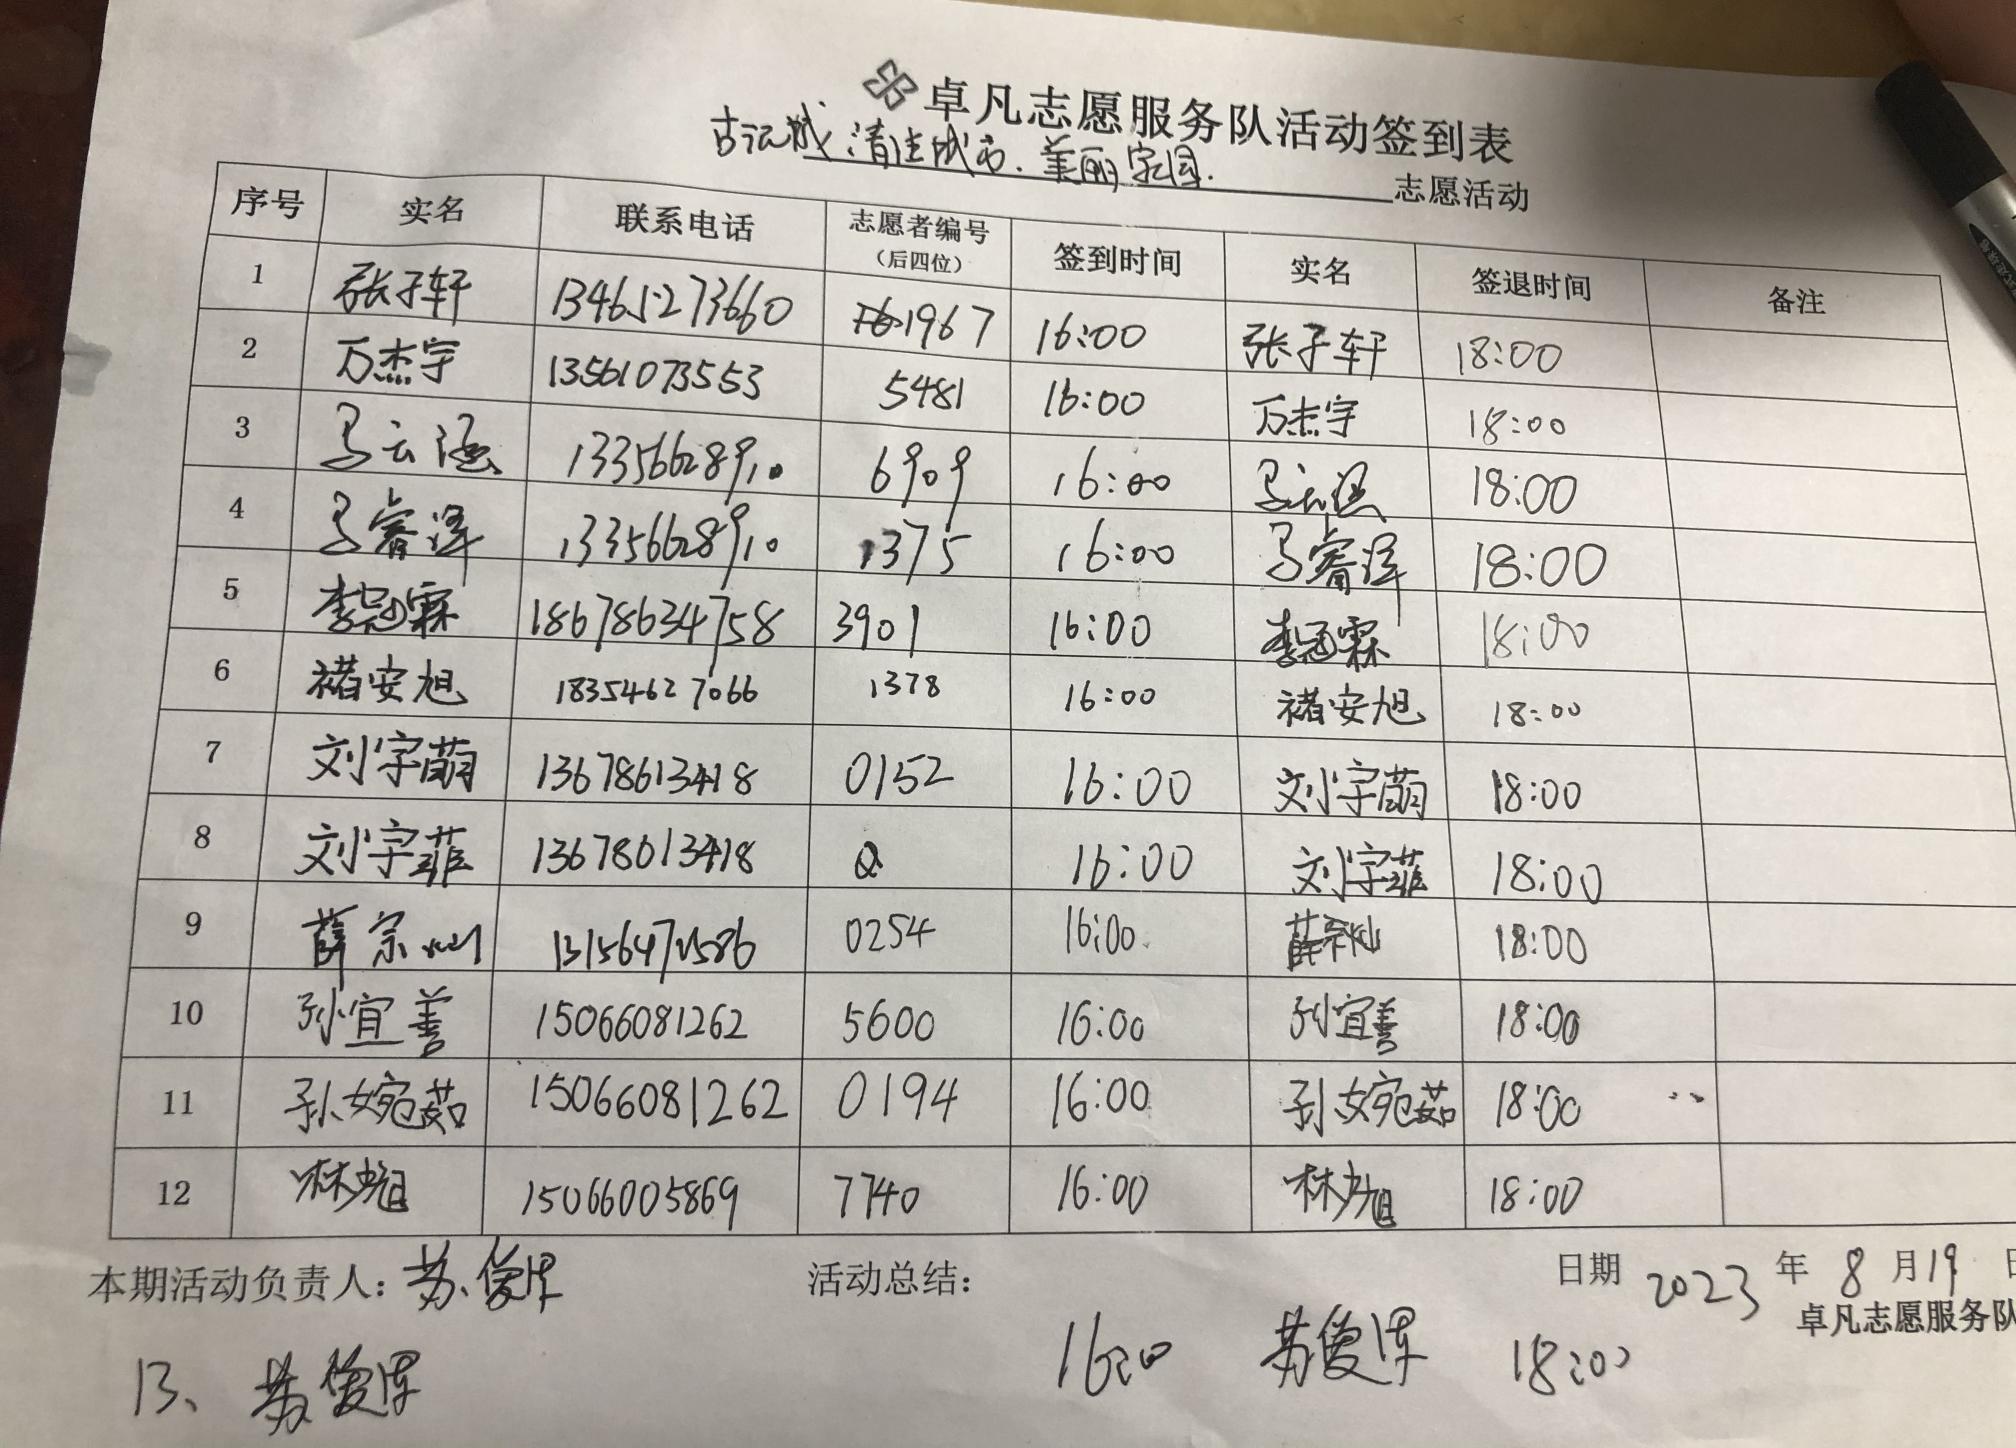 卓凡志愿服务队活动签到表
清洁城市.美丽家园. 志愿活动
序号 实名 联系电话 志愿者编号（后四位） 签到时间 实名 签退时间 备注
1 张子轩 13465273660 1967 16:00 张子轩 18:00
2 万杰宇 13561073553 5481 16:00 万杰宇 18:00
3 马云涵 13356628910 6909 16:00 马云涵 18:00
4 马睿泽 13356628910 1375 16:00 马睿泽 18:00
5 李冠霖 18678634758 3901 16:00 李冠霖 18:00
6 褚安旭 18354627066 1378 16:00 褚安旭 18:00
7 刘宇萌 13678613418 0152 16:00 刘宇萌 18:00
8 刘宇菲 13678613418 16:00 刘宇菲 18:00
9 薛宗灿 0254 16:00 薛宗灿 18:00
10 孙宜善 15066081262 5600 16:00 孙宜善 18:00
11 孙婉茹 15066081262 0194 16:00 孙婉茹 18:00
12 15066005869 7740 16:00 18:00
本期活动负责人: 苏 活动总结: 日期 2023 年 8 月 19 日
卓凡志愿服务队
13、苏 16:00 苏 18:00